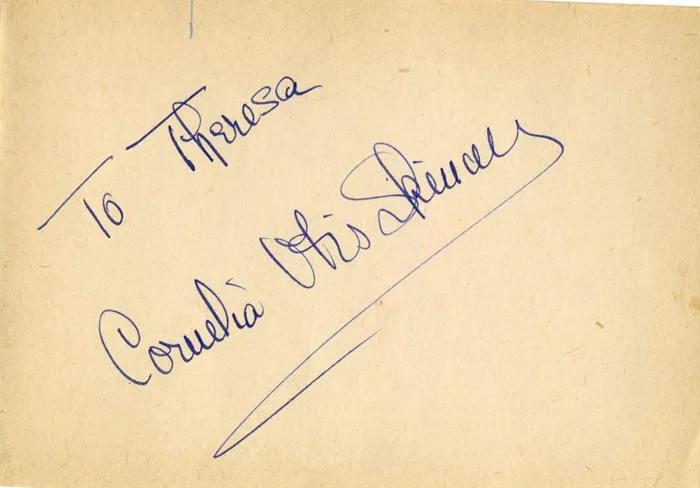 To Theresa
Cornelia Otis Skinner